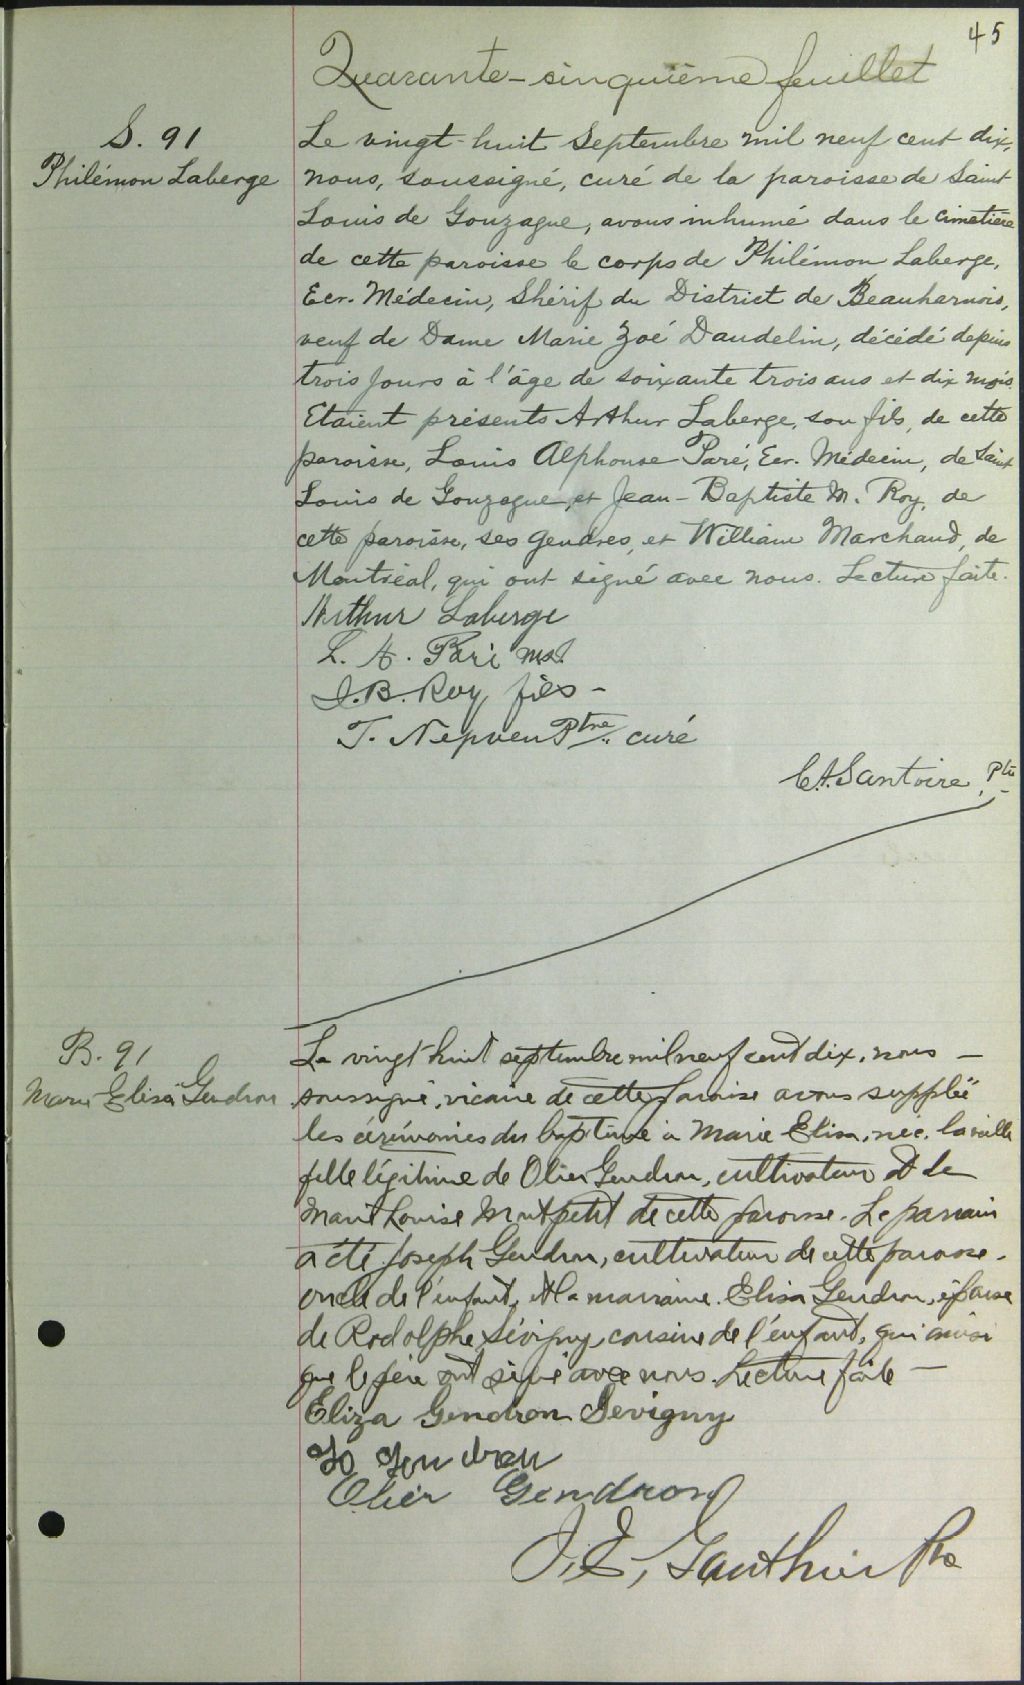 45
Quarante-cinquième feuillet
S. 91
Philémon Laberge
Le vingt-huit Septembre mil neuf cent dix,
nous, soussigné, curé de la paroisse de Saint
Louis de Gonzague, avons inhumé dans le cimetière
de cette paroisse le corps de Philémon Laberge,
Ecr. Médecin, Shérif du District de Beauharnois,
veuf de Dame Marie Zoé Daudelin, décédé depuis
trois jours à l'âge de soixante trois ans et dix mois.
Etaient présents Arthur Laberge, son fils, de cette
paroisse, Louis Alphonse Paré, Ecr. Médecin, de Saint
Louis de Gonzague, et Jean-Baptiste M. Roy, de
cette paroisse, ses gendres, et William Marchand, de
Montréal, qui ont signé avec nous. Lecture faite.
Arthur Laberge
L. A. Paré md.
J.B. Roy fils -
T. Nepveu Ptre curé
C.A. Santoire, Ptre
B. 91
Marie Elisa Gendron
Le vingt huit septembre mil neuf cent dix, nous -
soussigné, vicaire de cette paroisse avons suppléé
les cérémonies du baptême à Marie Elisa, née la veille
fille légitime de Olier Gendron, cultivateur et de
Marie Louise Montpetit de cette paroisse. Le parrain
a été Joseph Gendron, cultivateur de cette paroisse.
oncle de l'enfant, et la marraine Elisa Gendron, épouse
de Rodolphe Sévigny cousine de l'enfant, qui ainsi
que le père ont signé avec nous. Lecture faite -
Eliza Gendron Sevigny
Jo Gendron
Olier Gendron
J. E. Gauthier Ptre